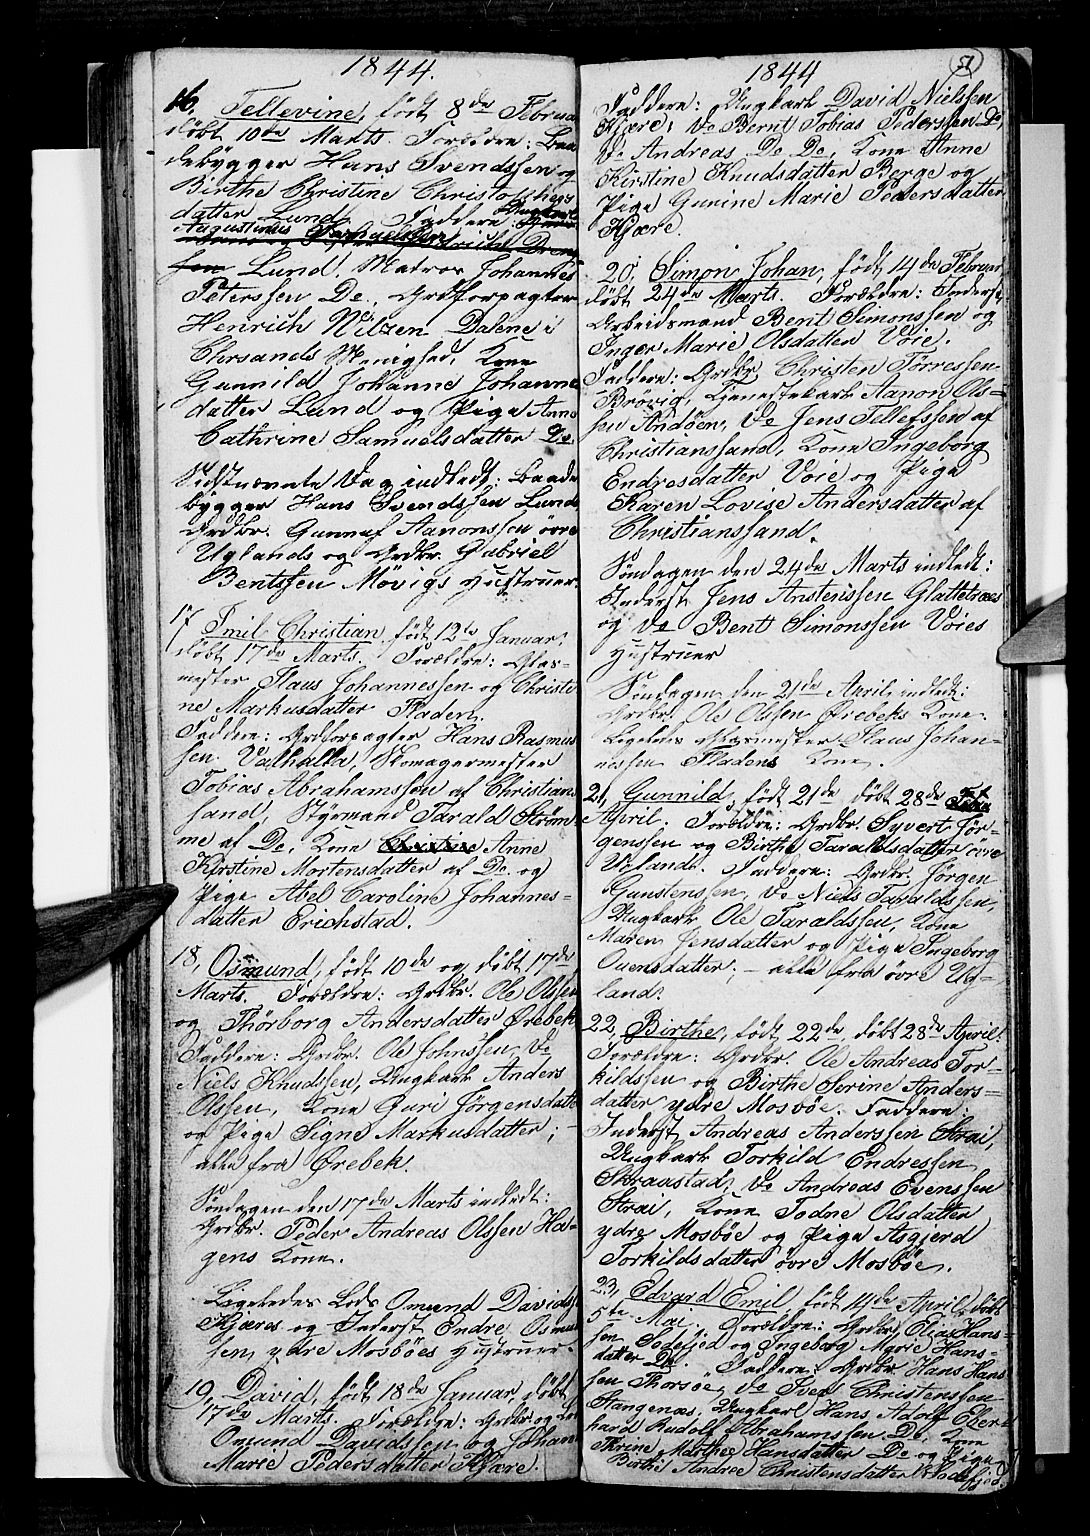 1844.
16. Tellevine, født 8de Februar
døbt 10de Marts. Forældre: Baa-
debygger Hans Svendssen og
Birthe Christine Christophers-
datter Lund. Faddere: Ungkarl
Augustinus
Lund, Matros Johannes
Peterssen Do., Grdforpagter
Henrich Nilzen Dalene i
Chrsands Menighed, Kone
Gunnild Johanne Johanne
datter Lund og Pige Anne
Cathrine Samuelsdatter Do.
Sidstnævnte Dag indledt: Baade-
bygger Hans Svendssen Lunds,
Grdbr. Gunnuf Aanonssen øvre
Uglands og Grdbr. Gabriel
Bentssen Møvigs Hustruer.
17 Emil Christian, født 12te Januar,
døbt 17de Marts. Forældre: Glas-
mester Klaus Johannessen og Christi-
ne Markusdatter Fladen.
Faddere: Grdforpagter Hans Rasmus-
sen Valhalla, Skomagermester
Tobias Abrahamssen af Christian-
sand, Styrmand Tarald Strøm-
me af Do., Kone Anne
Kirstine Mortensdatter af Do. og
Pige Abel Caroline Johannes-
datter Erichstad.
18, Osmund, født 10de og døbt 17de
Marts. Forældre: Grdbr. Ole Olssen
og Thorborg Andersdatter Ørebek
Faddere: Grdbr. Ole Johnssen, Do
Niels Knudssen, Ungkarl Anders
Olssen, Kone Guri Jørgensdatter
og Pige Signe Markusdatter; –
alle fra Ørebek.
Søndagen den 17de Marts indledt:
Grdbr. Peder Andreas Olssen Ha-
gens Kone.
Ligeledes Lods Omund Davids
Kjæres og Inderst Endre Osmund
sen ydre Mosbøes Hustruer.
19, David, født 18de Januar, døbt
17de Marts. Forældre: Grdbr og Lods
Omund Davidssen og Johanne
Marie Pedersdatter Kjære.
1844
51
Faddere: Ungkarl David Nielssen
Kjære, Do Bernt Tobias Pederssen Do,
Do Andreas Do Do, Kone Anne
Kirstine Knudsdatter Berge og
Pige Gunine Marie Pedersdatter
Kjære.
20, Simon Johan, født 14de Februar
døbt 24de Marts. Forældre: Inderst
Arbeidsmand Bent Simonssen og
Inger Marie Olsdatter Voie.
Faddere: Grdbr Christen Tørressen
Brovig, Tjenestekarl Aanon Ols-
sen Andøen, Do Jens Tellefssen af
Christianssand, Kone Ingeborg
Endresdatter Voie og Pige
Karen Lovise Andersdatter af
Christianssand.
Søndagen den 24de Marts indledt:
Inderst Jens Anstenssen Glattetræs
og Do Bent Simonssen Voies
Hustruer
Søndagen den 21de April indledt:
Grdbr. Ole Olssen Ørebeks Kone.
Ligeledes Glasmester Klaus Johan-
nessen Fladens Kone.
21, Gunnild, født 21de døbt 28de
April. Forældre: Grdbr. Syvert Jør-
genssen og Birthe Taraldsdatter øvre
Ugland. Faddere: Grdbr. Jørgen
Gunstenssen, Do Niels Taraldssen,
Ungkarl Ole Taraldssen, Kone
Maren Jensdatter og Pige Ingeborg
Ouensdatter; – alle fra øvre Ug-
land.
22, Birthe, født 22de, døbt 28de April.
Forældre: Grdbr. Ole Andreas Tor-
kildssen og Birthe Serine Anders-
datter ydre Mosbøe. Faddere:
Inderst Andreas Anderssen Strai,
Ungkarl Torkild Endressen
Skraastad, Do Andreas Evenssen
Strai, Kone Todne Olsdatter
ydre Mosbøe og Pige Asgjerd
Torkildsdatter øvre Mosbøe.
23, Edvard Emil, født 14de April, døbt
5te Mai. Forældre: Grdbr. Elias Hans-
sen Sodefjed og Ingeborg Marie Hans-
datter Do. Faddere: Grdbr. Hans Hans-
sen Thorsøe, Do Svend Christenssen
Stangenæs, Ungkarl Hans Adolf Eber-
hard Rudolf Abrahamssen Do. Kone
Thrine Marthee Hansdatter Do og Pige
Birthe Andree Christensdatter Sode-
fjed.